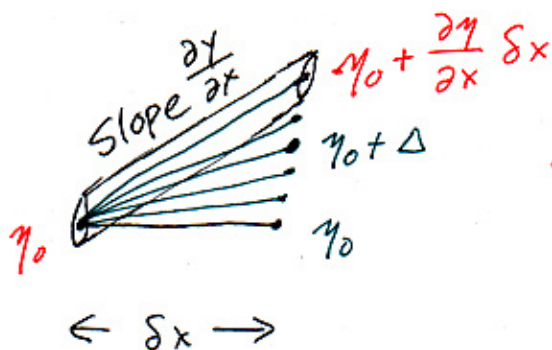 Slope ∂y/∂x
η₀ + ∂η/∂x δx
η₀ + Δ
η₀
η₀
← δx →